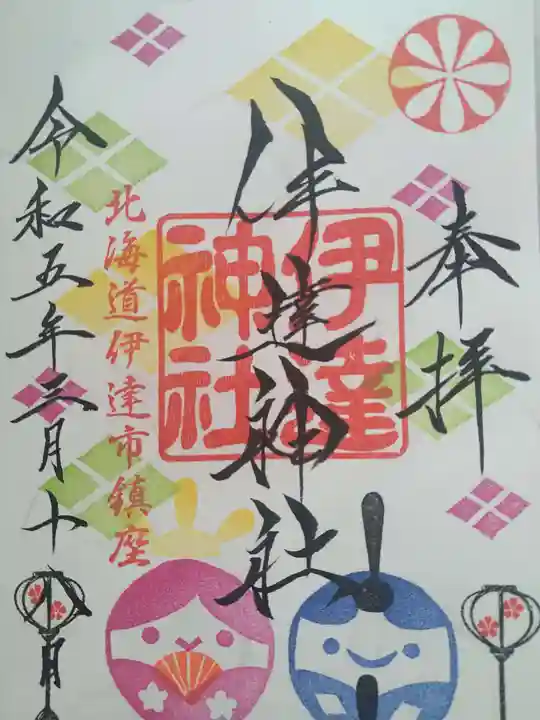 奉拝
伊達神社
伊達
神社
北海道伊達市鎮座
令和五年三月十八日